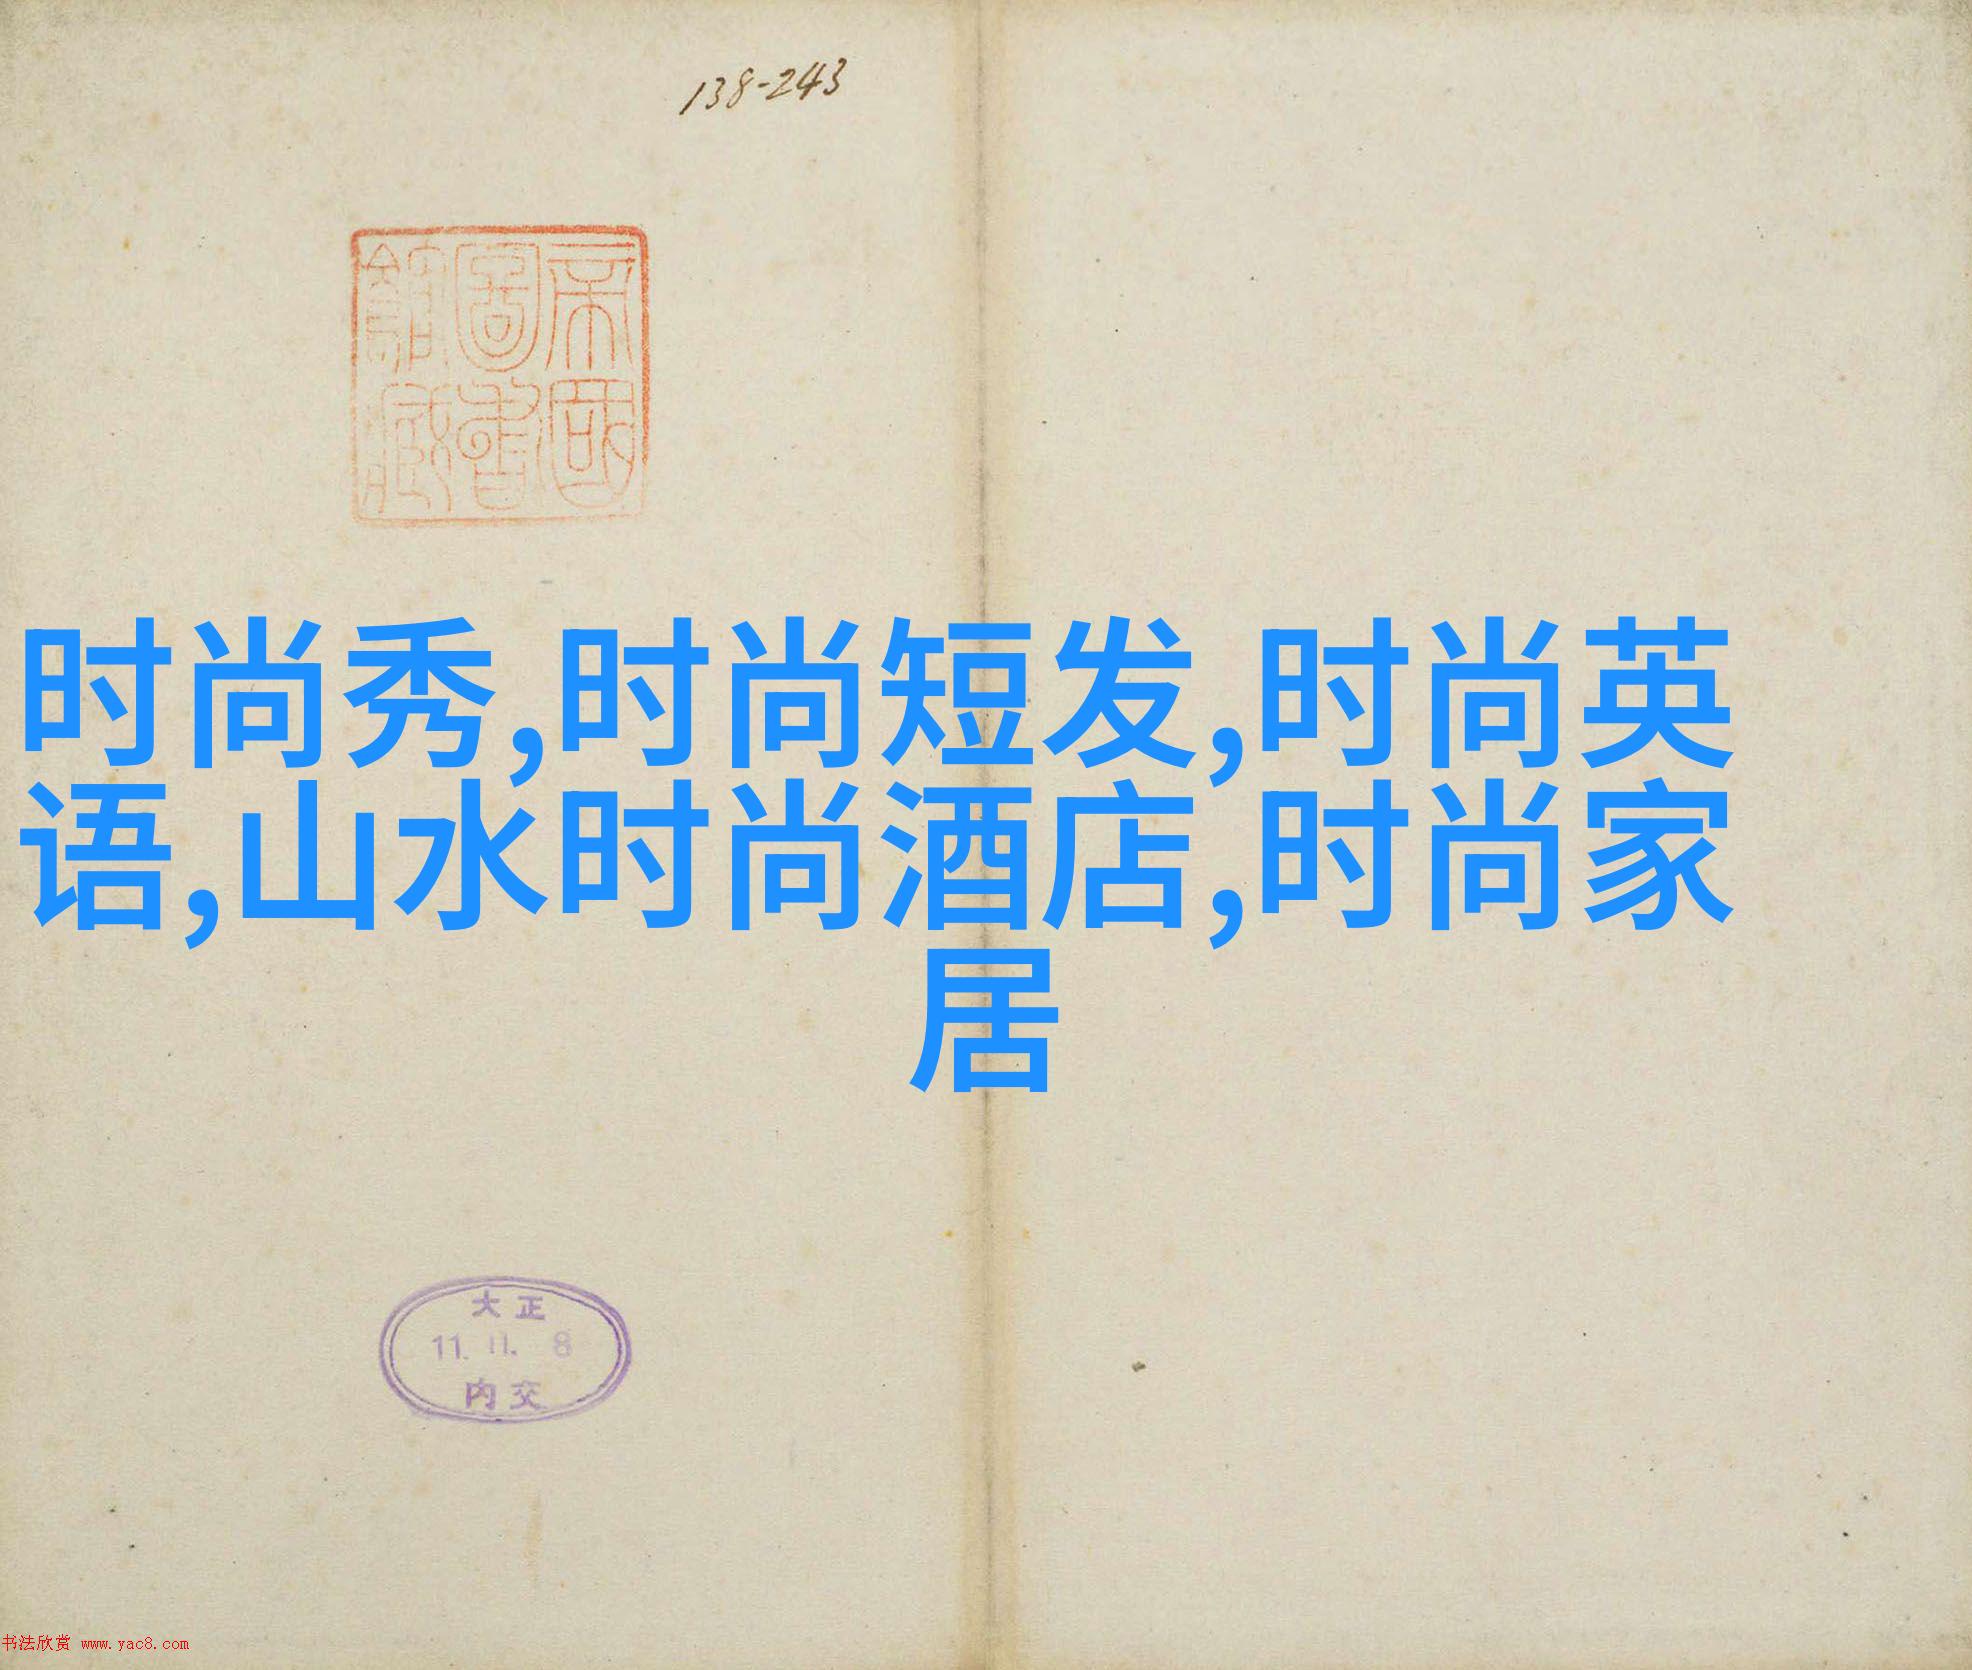 138-243
帝國
圖書
館藏
时尚秀,时尚短发,时尚英
语,山水时尚酒店,时尚家
居
大正
11. 11. 8
内交
书法欣赏 www.yac8.com